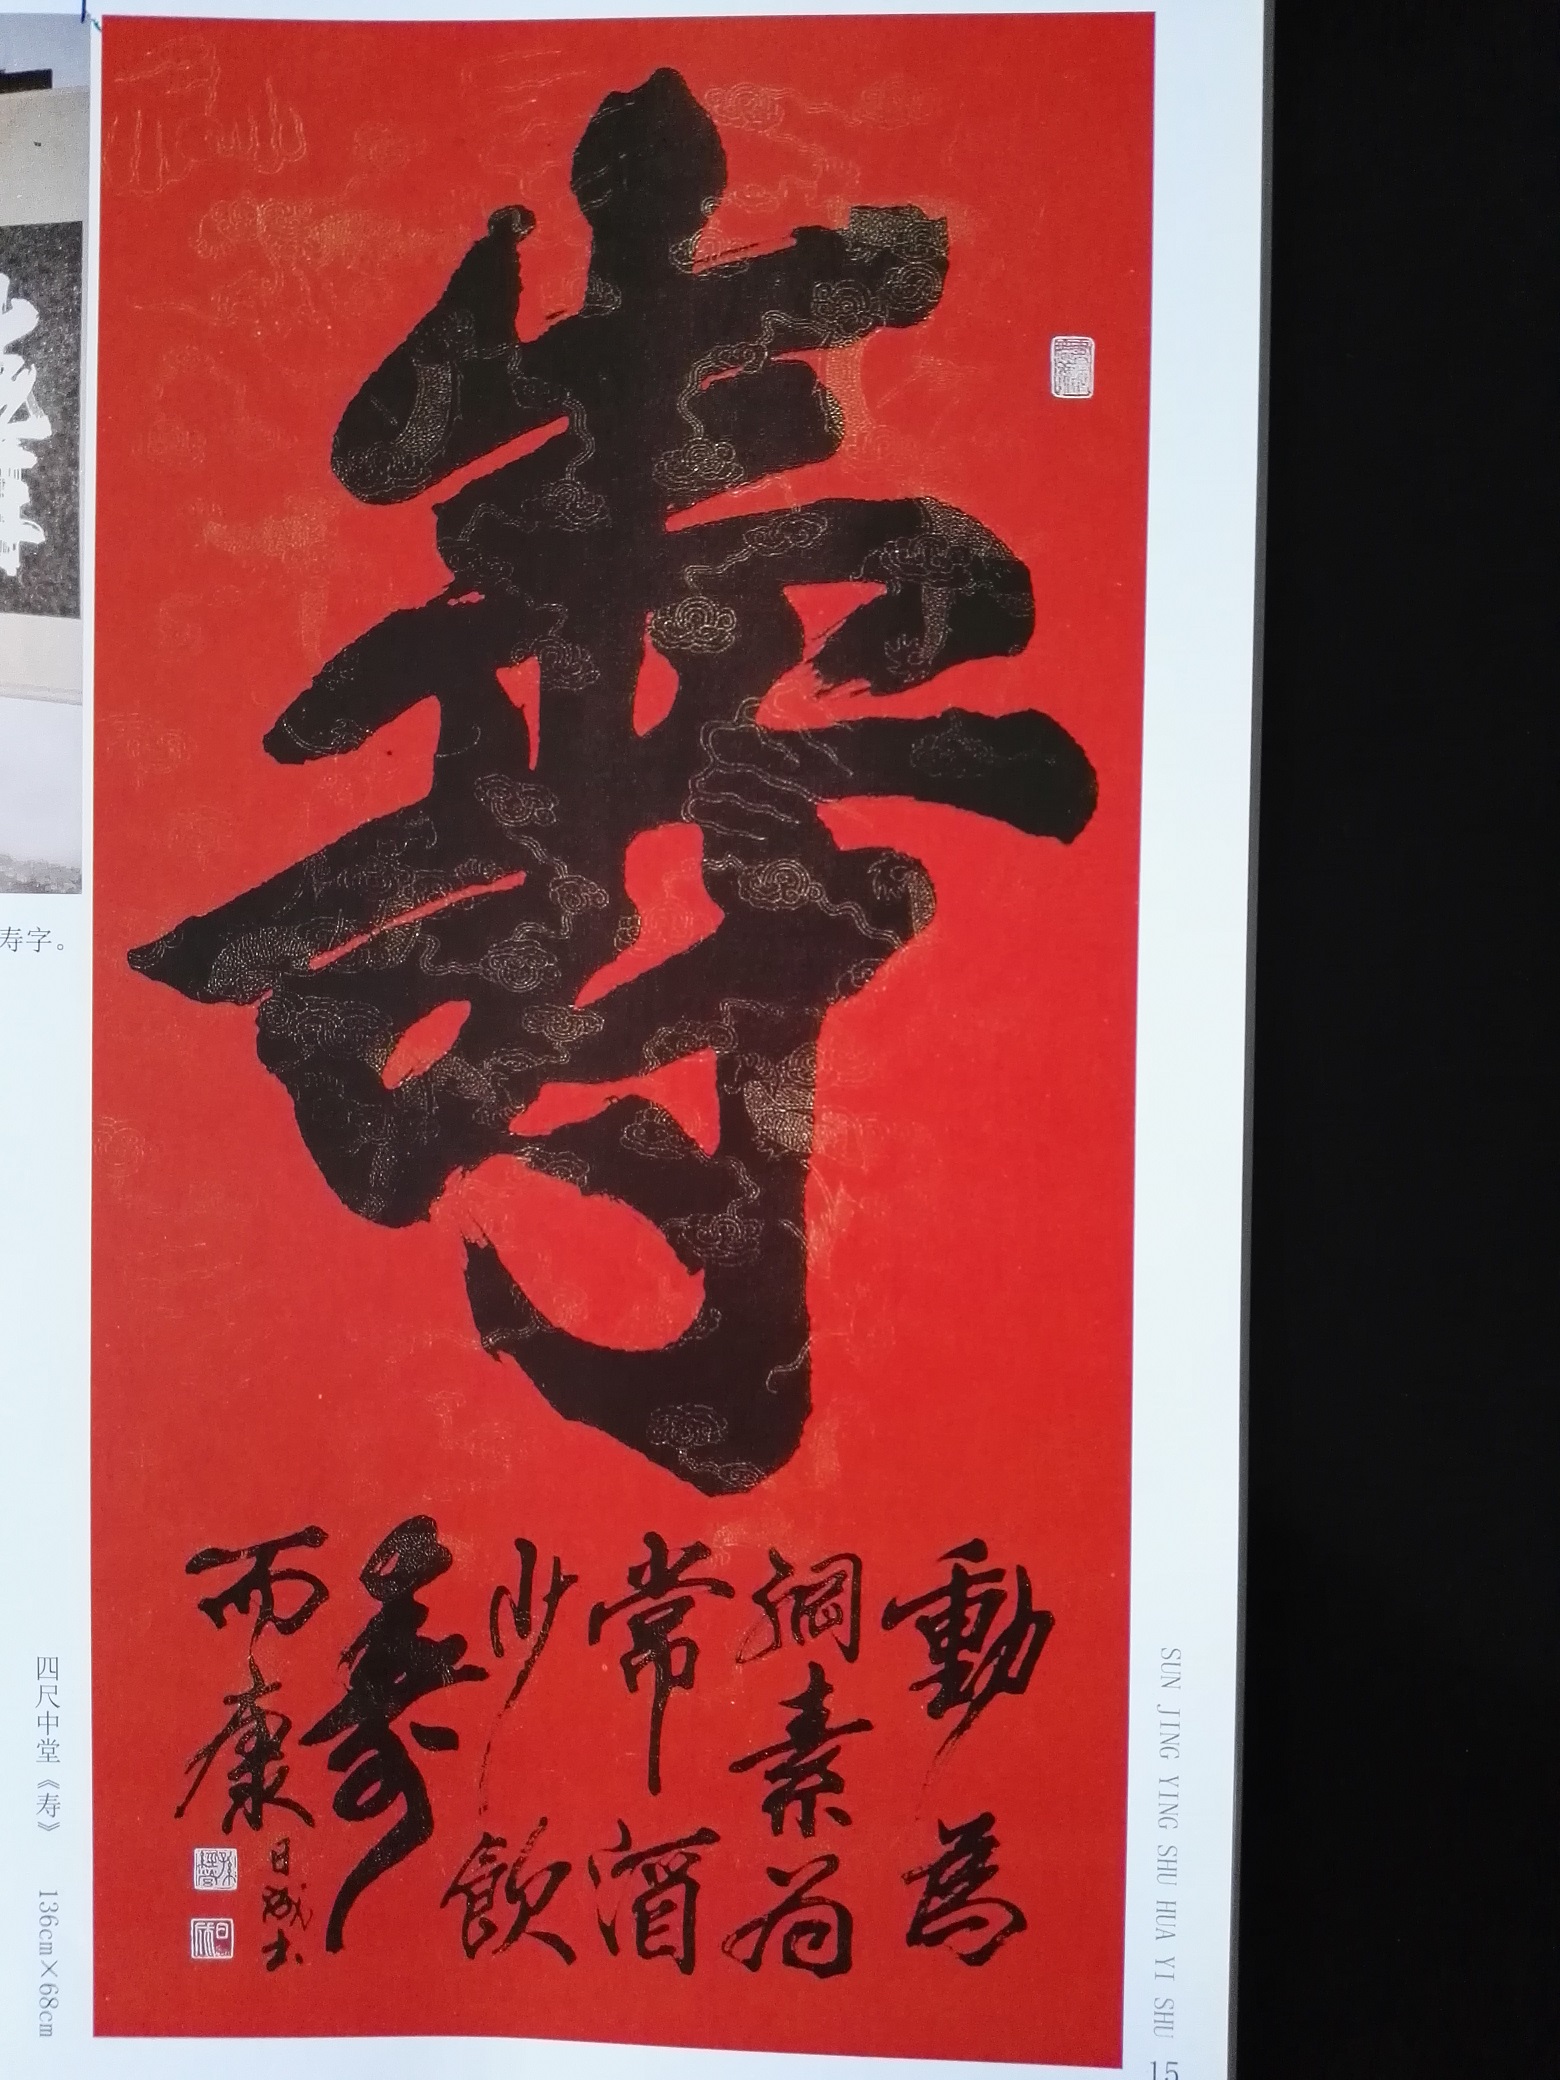 壽
動為
綱素为
常酒
少飲
壽
而康
寿字。
四尺中堂《寿》 136cm×68cm
SUN JING YING SHU HUA YI SHU 15